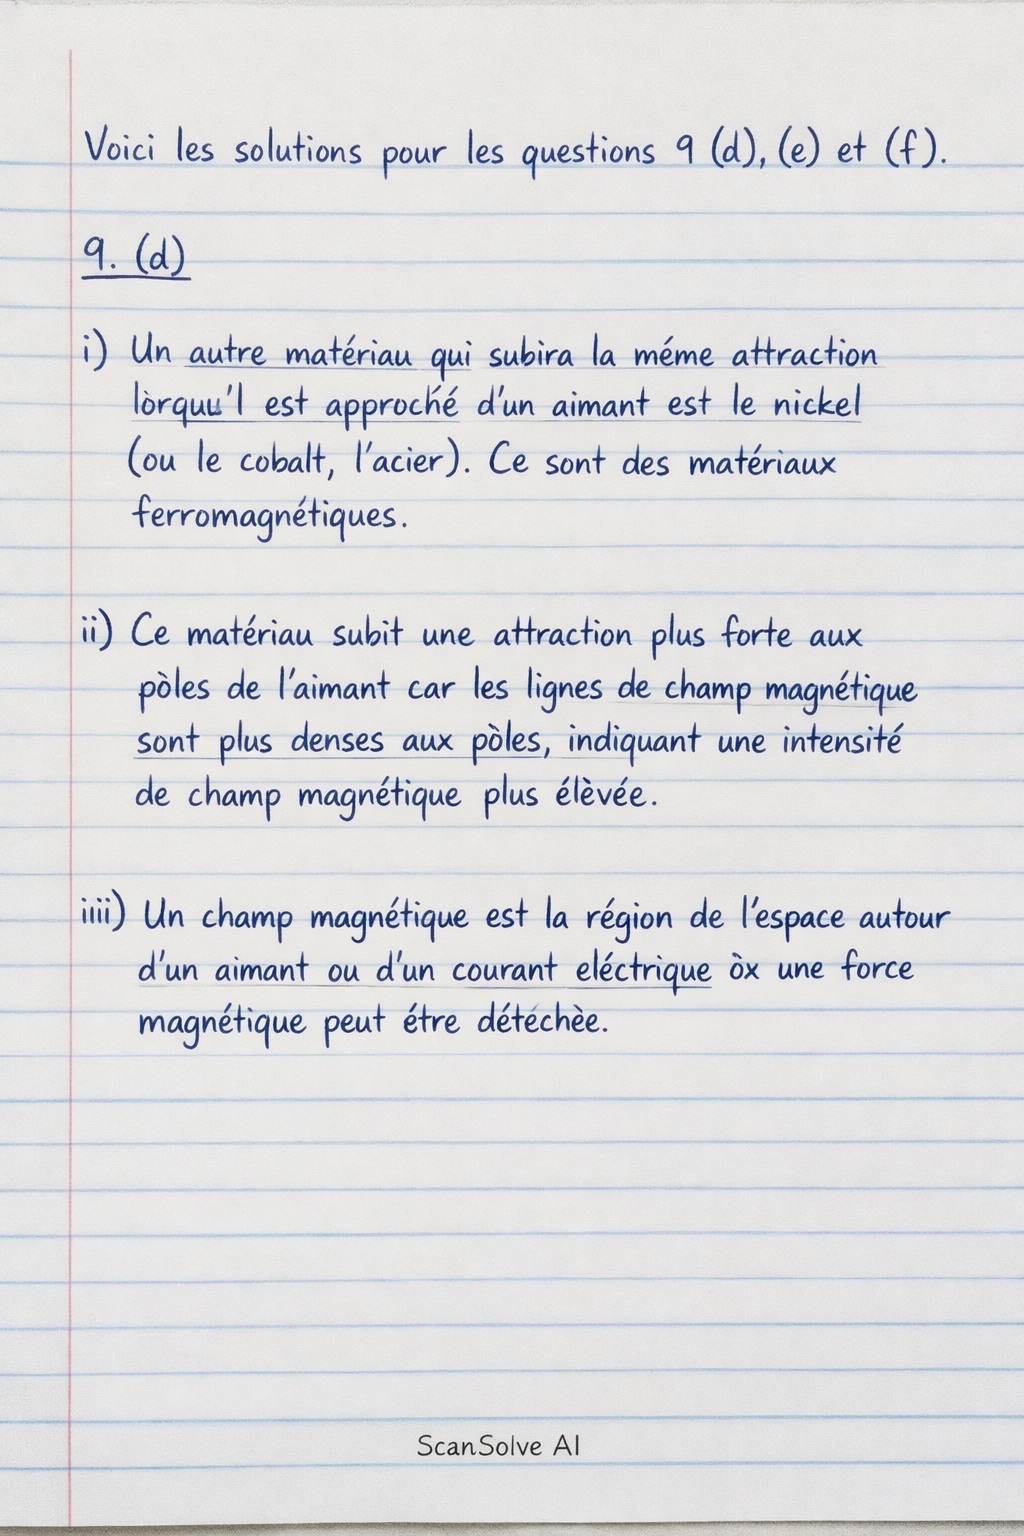 Voici les solutions pour les questions 9 (d), (e) et (f).
9. (d)
i) Un autre matériau qui subira la méme attraction
lorquu'l est approché d'un aimant est le nickel
(ou le cobalt, l'acier). Ce sont des matériaux
ferromagnétiques.
ii) Ce matériau subit une attraction plus forte aux
pòles de l'aimant car les lignes de champ magnétique
sont plus denses aux pòles, indiquant une intensité
de champ magnétique plus élèvée.
iiii) Un champ magnétique est la région de l'espace autour
d'un aimant ou d'un courant eléctrique òx une force
magnétique peut étre détéchèe.
ScanSolve AI